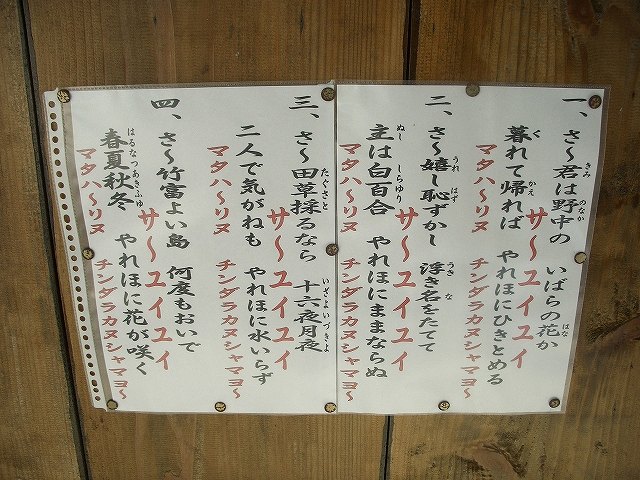 一、さ〜君は野中の　いばらの花か
サ〜ユイユイ
暮れて帰れば　やれほにひきとめる
マタハ〜リヌ　チンダラカヌシャマヨ〜
二、さ〜嬉し恥ずかし　浮き名をたてて
サ〜ユイユイ
主は白百合　やれほにままならぬ
マタハ〜リヌ　チンダラカヌシャマヨ〜
三、さ〜田草採るなら　十六夜月夜
サ〜ユイユイ
二人で気がねも　やれほに水いらず
マタハ〜リヌ　チンダラカヌシャマヨ〜
四、さ〜竹富よい島　何度もおいで
サ〜ユイユイ
春夏秋冬　やれほに花が咲く
マタハ〜リヌ　チンダラカヌシャマヨ〜